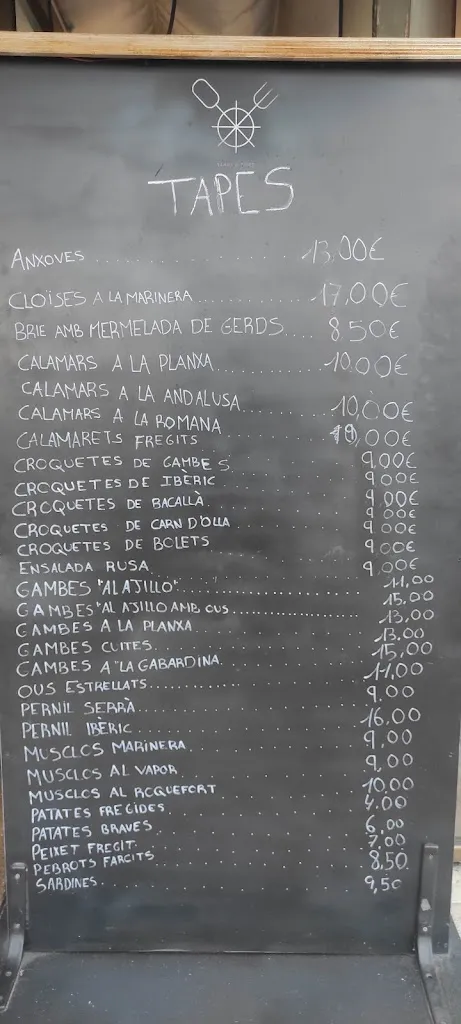 TAPES
ANXOVES ............ 13,00€
CLOÏSES A LA MARINERA ............ 17,00€
BRIE AMB MERMELADA DE GERDS.... 8.50€
CALAMARS A LA PLANXA ............ 10.00€
CALAMARS A LA ANDALUSA ............ 10,00€
CALAMARS A LA ROMANA ............ 10,00€
CALAMARETS FREGITS ............ 9.00€
CROQUETES DE GAMBES ............ 9.00€
CROQUETES DE IBÈRIC ............ 9,00€
CROQUETES DE BACALLÀ ............ 9.00€
CROQUETES DE CARN D'OLLA ............ 9.00€
CROQUETES DE BOLETS ............ 9.00€
ENSALADA RUSA ............ 9,00€
GAMBES "AL AJILLO" ............ 11,00
GAMBES "AL AJILLO AMB OUS ............ 15,00
GAMBES A LA PLANXA ............ 13,00
GAMBES CUITES ............ 13.00
GAMBES A "LA GABARDINA ............ 15,00
OUS ESTRELLATS ............ 11,00
PERNIL SERRÀ ............ 9.00
PERNIL IBÈRIC ............ 16,00
MUSCLOS MARINERA ............ 9,00
MUSCLOS AL VAPOR ............ 9,00
MUSCLOS AL ROQUEFORT ............ 10,00
PATATES FREGIDES ............ 4.00
PATATES BRAVES ............ 6,00
PEIXET FREGIT ............ 7,00
PEBROTS FARCITS ............ 8,50
SARDINES ............ 9,50